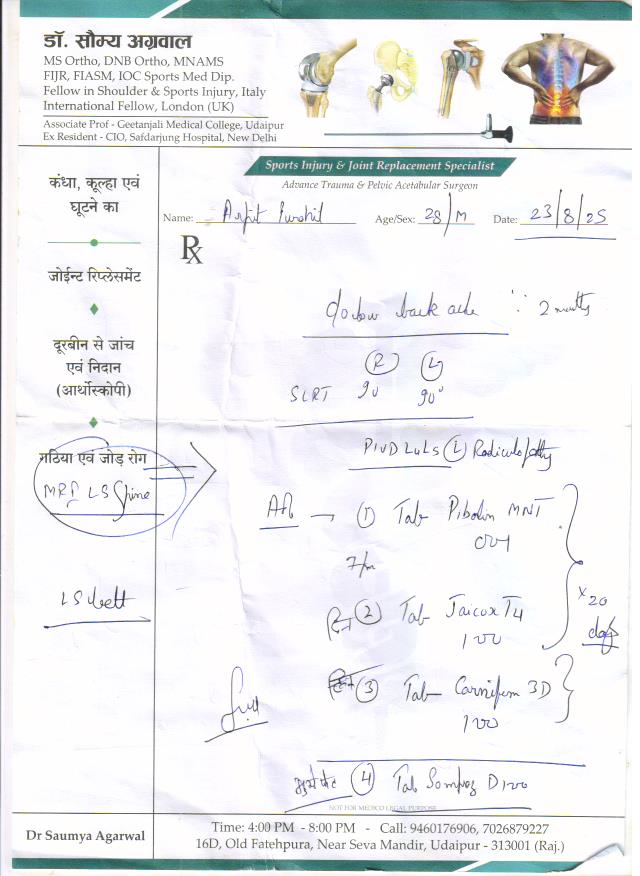 डॉ. सौम्य अग्रवाल
MS Ortho, DNB Ortho, MNAMS
FIJR, FIASM, IOC Sports Med Dip.
Fellow in Shoulder & Sports Injury, Italy
International Fellow, London (UK)
Associate Prof - Geetanjali Medical College, Udaipur
Ex Resident - CIO, Safdarjung Hospital, New Delhi
Sports Injury & Joint Replacement Specialist
Advance Trauma & Pelvic Acetabular Surgeon
कंधा, कूल्हा एवं
घूटने का
जोईन्ट रिप्लेसमेंट
दूरबीन से जांच
एवं निदान
(आर्थोस्कोपी)
गठिया एवं जोड़ रोग
MRI LS Spine
LS belt
Name: Arpit Age/Sex: 28/M Date: 23/8/25
Rx
c/o low back ache 2 months
R L
SLRT 90 90°
PIVD L4L5 L Radiculopathy
1 Tab MNT
2 Tab T4
100
x 20 days
3 Tab 3D
100
4 Tab Sompraz D 100
NOT FOR MEDICO LEGAL PURPOSE
Dr Saumya Agarwal
Time: 4:00 PM - 8:00 PM - Call: 9460176906, 7026879227
16D, Old Fatehpura, Near Seva Mandir, Udaipur - 313001 (Raj.)